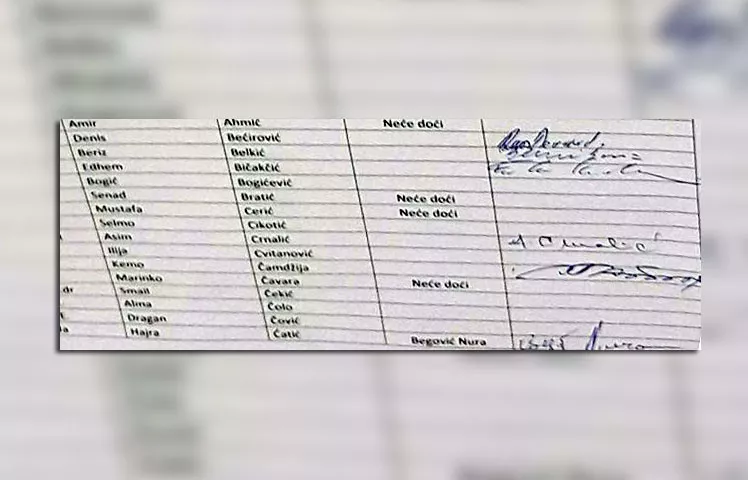 Amir Ahmić Neće doći
Denis Bećirović
Beriz Belkić
Edhem Bičakčić
Bogić Bogićević
Senad Bratić Neće doći
Mustafa Cerić Neće doći
Selmo Cikotić
Asim Crnalić A Crnalić
Ilija Cvitanović
Kemo Čamdžija
Marinko Čavara Neće doći
dr Smail Čekić
Alma Čolo
Dragan Čović
Hajra Ćatić Begović Nura